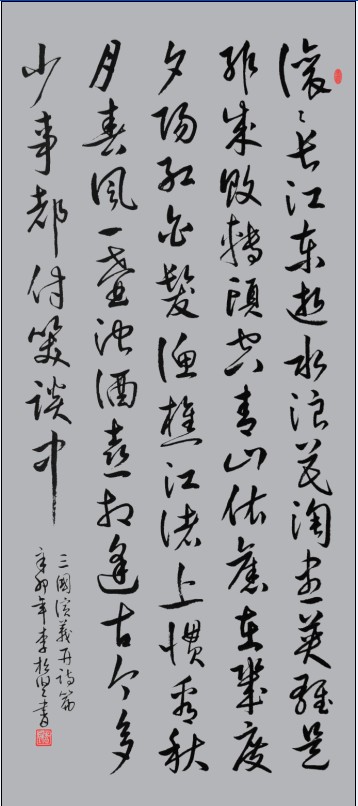 滚々长江东逝水浪花淘尽英雄是
非成败轉頭空青山依舊在幾度
夕陽紅白髮渔樵江渚上惯看秋
月春风一壶浊酒喜相逢古今多
少事都付笑谈中
三國演義开诗篇
辛卯年李松书